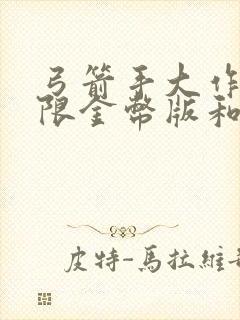 弓箭手大作
限金幣版和
皮特-馬拉維